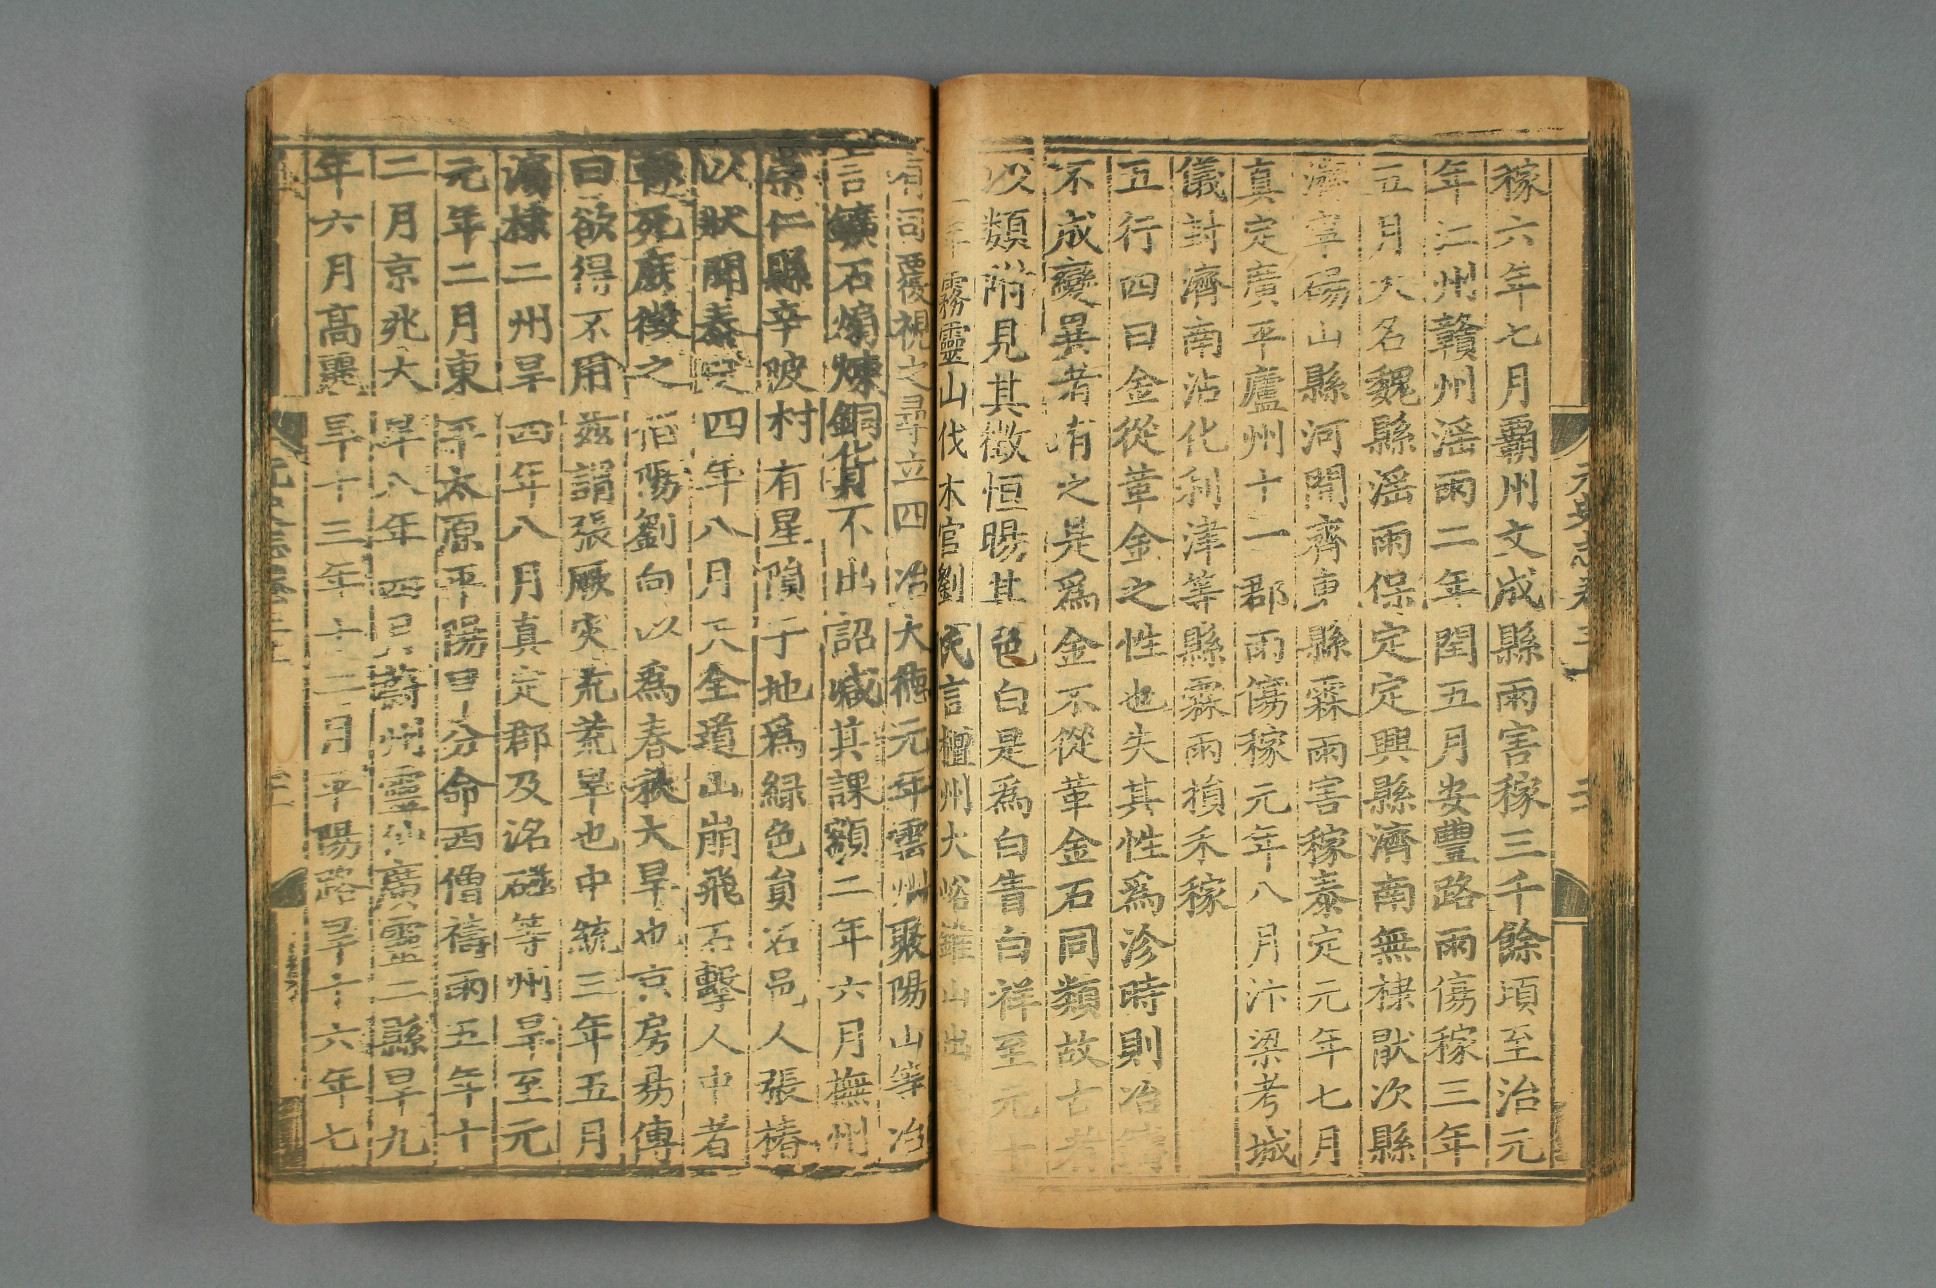 元史志卷三
稼六年七月霸州文成縣雨害稼三千餘頃至治元
年江州贛州滛雨二年閏五月安豐路雨傷稼三年
五月大名魏縣滛雨保定定興縣濟南無棣猒次縣
濟寧碭山縣河間齊東縣霖雨害稼泰定元年七月
真定廣平廬州十一郡雨傷稼元年八月汴梁考城
儀封濟南沾化利津等縣霖雨損禾稼
五行四曰金從革金之性也失其性爲沴時則冶鑄
不成變異者有之是爲金不從革金石同類故古者
以類附見其徴恒暘其色白是爲白眚白祥至元十
年霧靈山伐木官劉氏言檀州大峪錐山出
有司覆視之尋立四冶大德元年雲州聚陽山等冶
言鑛石煽煉銅貨不出詔减其課額二年六月撫州
崇仁縣辛陂村有星隕于地爲緑色貟石邑人張椿
以狀聞泰定四年八月天全道山崩飛石擊人中者
輙死庶徴之恒暘劉向以爲春秋大旱也京房易傳
曰欲得不用兹謂張厥灾荒荒旱也中統三年五月
濱棣二州旱四年八月真定郡及洺磁等州旱至元
元年二月東平太原平陽旱分命西僧禱雨五年十
二月京兆大旱八年四月蔚州靈仙廣靈二縣旱九
年六月高麗旱十三年十二月平陽路旱十六年七